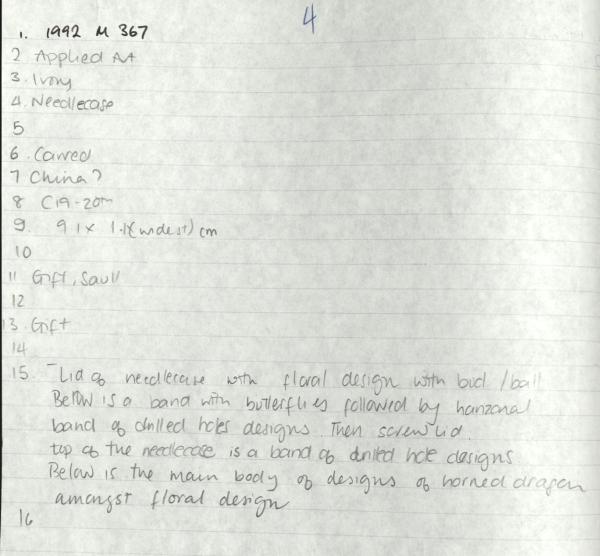 4
1. 1992 M 367
2 Applied Art
3. Ivory
4. Needlecase
5
6. Carved
7 China?
8 C19-20th
9. 9.1 x 1.1 (widest) cm
10
11 Gift, Saull
12
13. Gift
14
15. Lid of needlecase with floral design with bud / ball
Below is a band with butterflies followed by horizonal
band of drilled holes designs. Then screw lid.
top of the needlecase is a band of drilled hole designs
Below is the main body of designs of horned dragon
amongst floral design
16